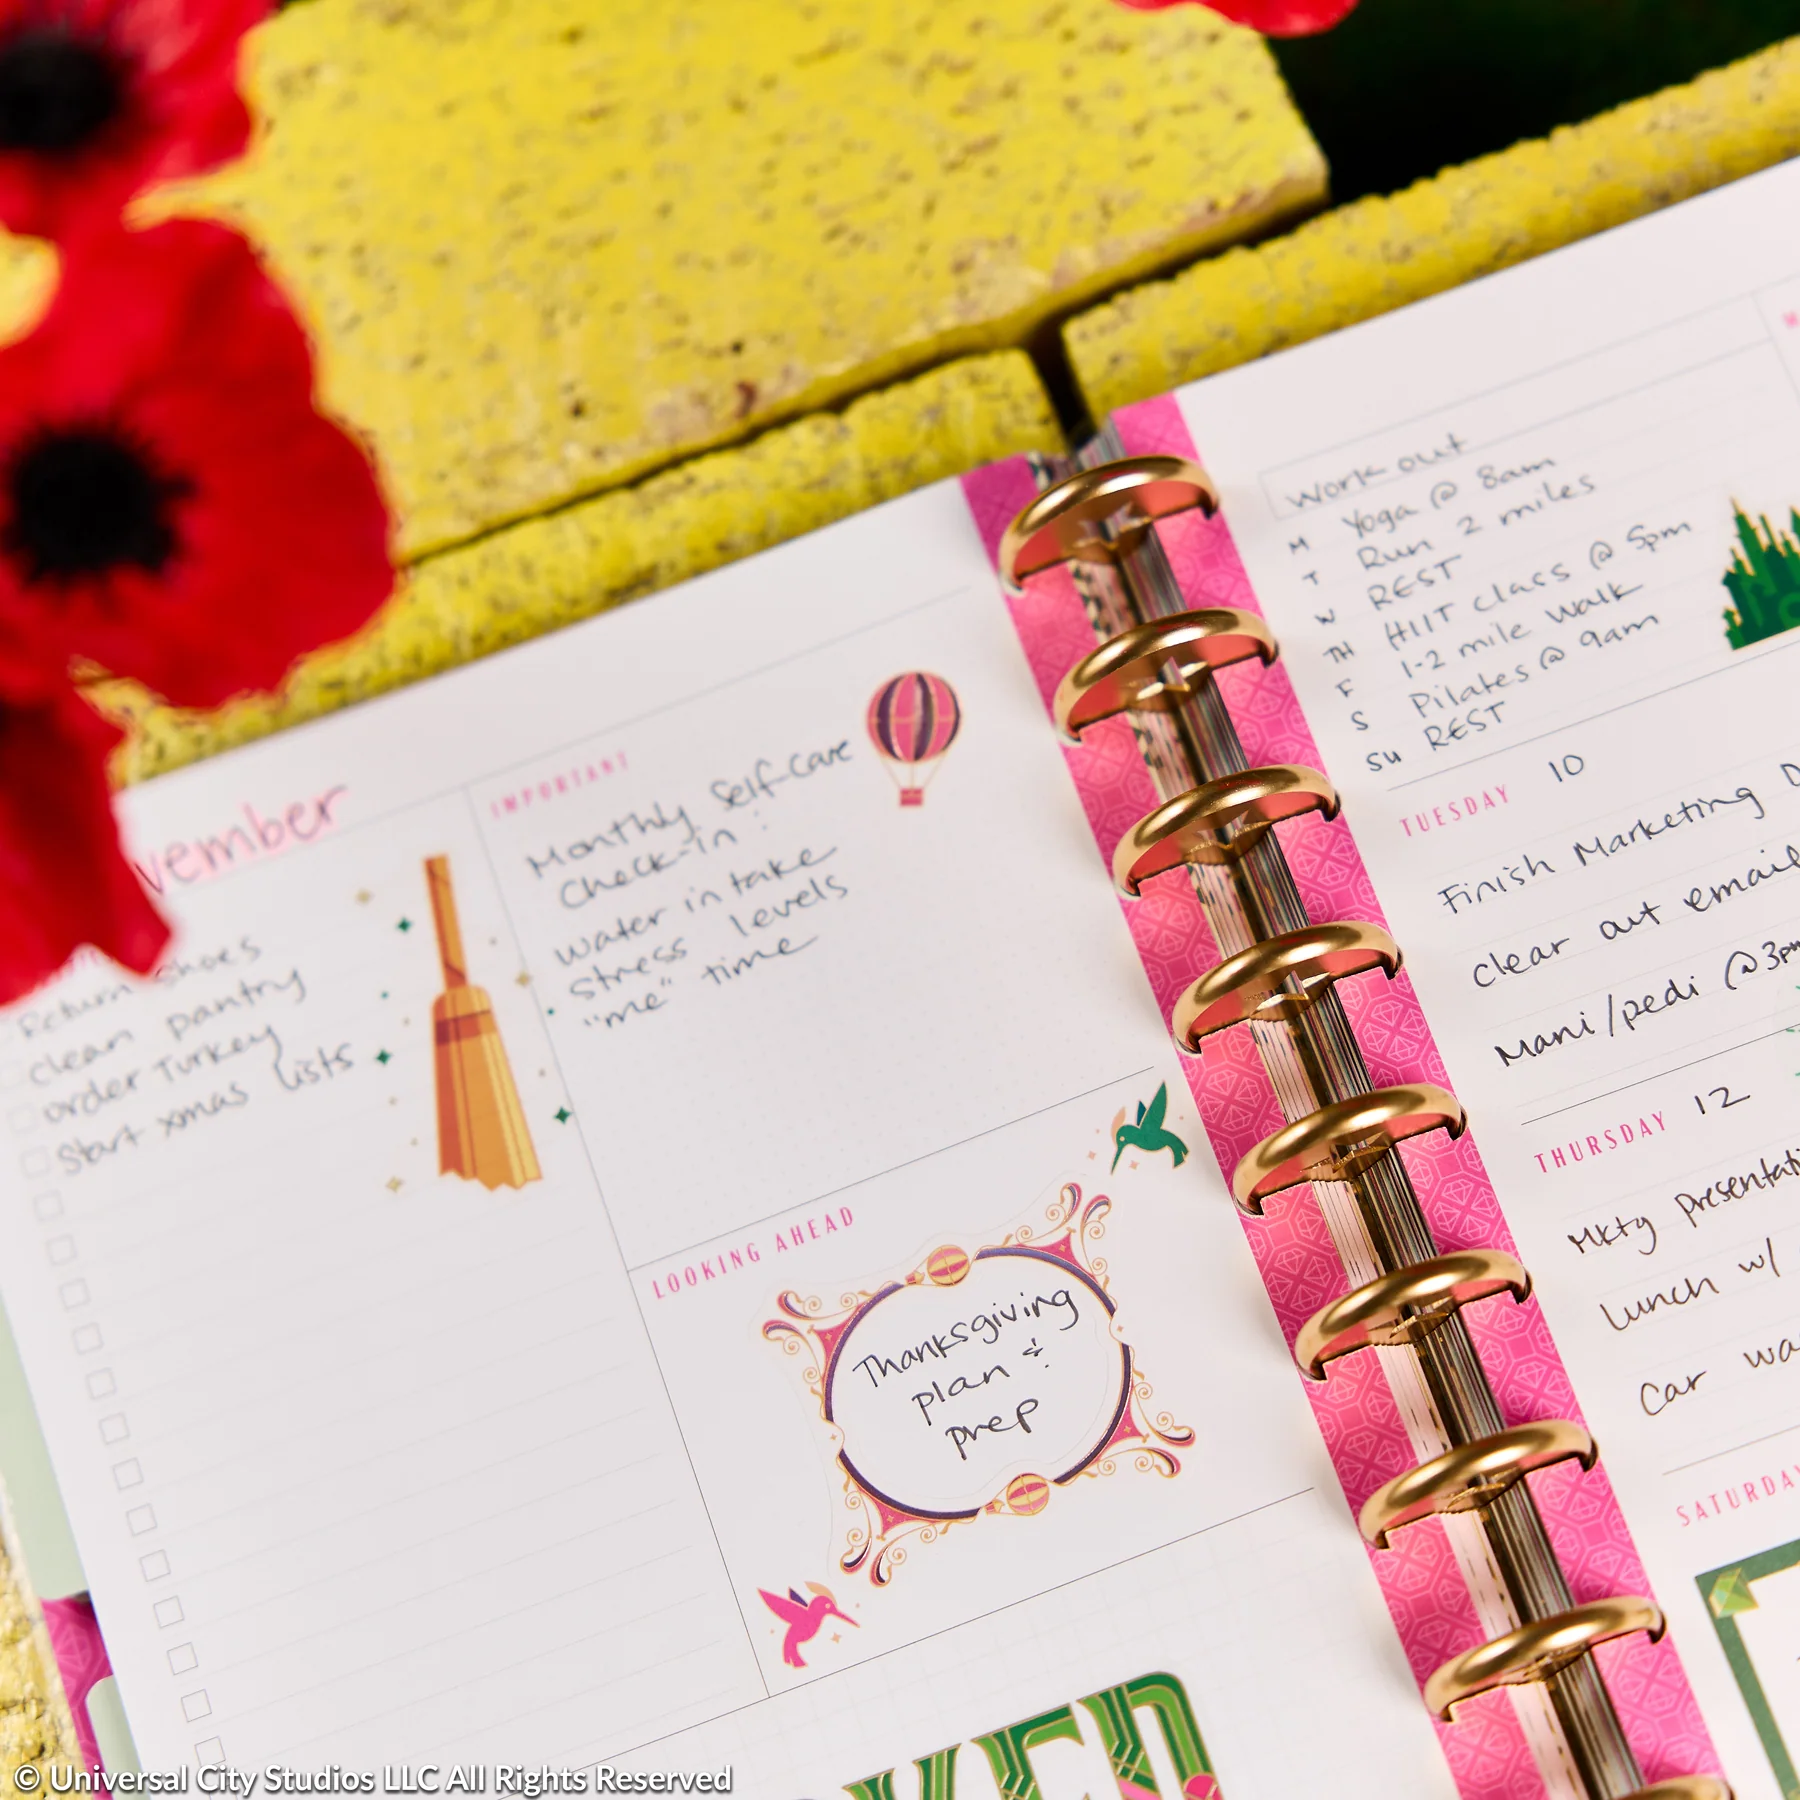 vember
Return shoes
clean pantry
order Turkey
Start xmas lists
IMPORTANT
Monthly Self-Care
Check-in:
water intake
stress levels
"me" time
LOOKING AHEAD
Thanksgiving
plan &
prep
Work out
M Yoga @ 8am
T Run 2 miles
W REST
TH HIIT class @ 5pm
F 1-2 mile walk
S Pilates @ 9am
SU REST
TUESDAY 10
Finish Marketing D
clear out email
Mani/pedi @3pm
THURSDAY 12
Mktg presentati
Lunch w/
Car wa
SATURDAY
© Universal City Studios LLC All Rights Reserved